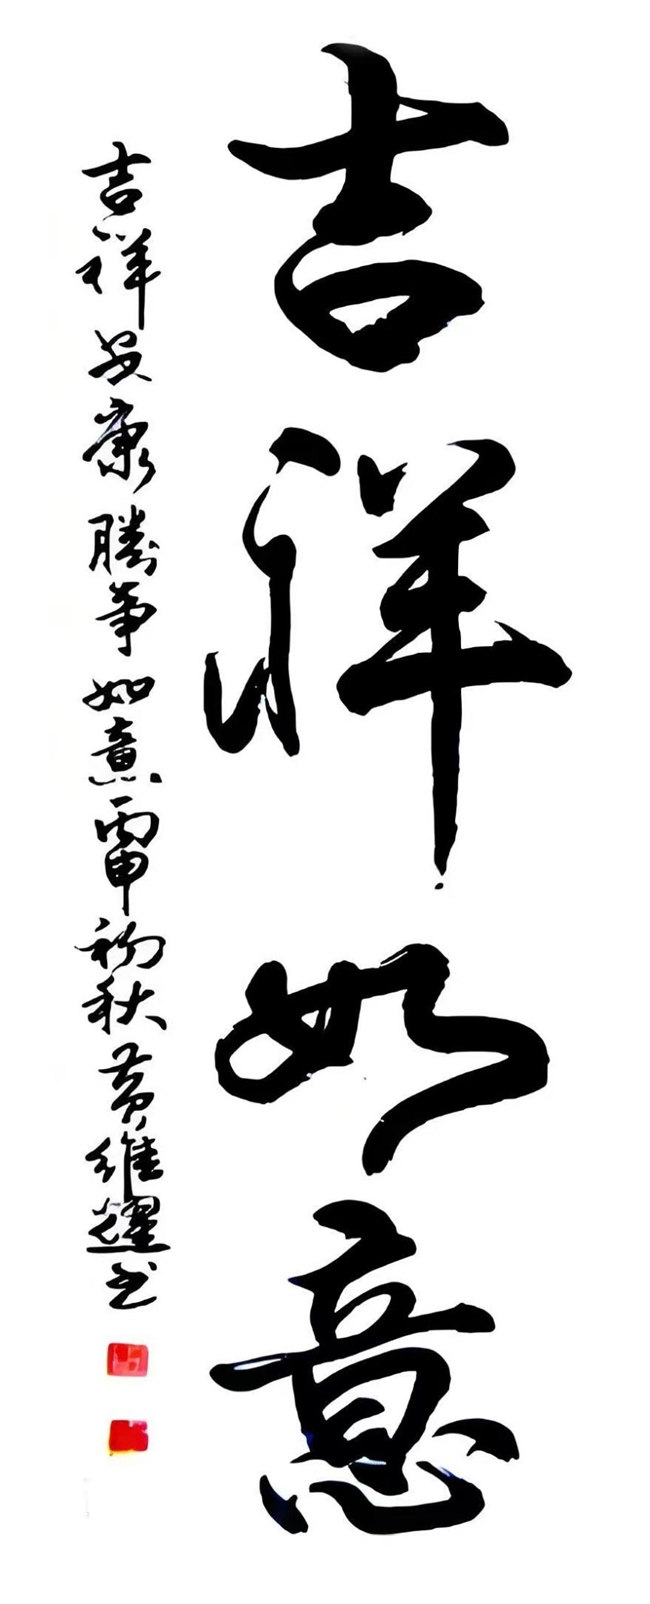 吉祥如意
吉祥安康勝爭如意丙申初秋黃維耀书